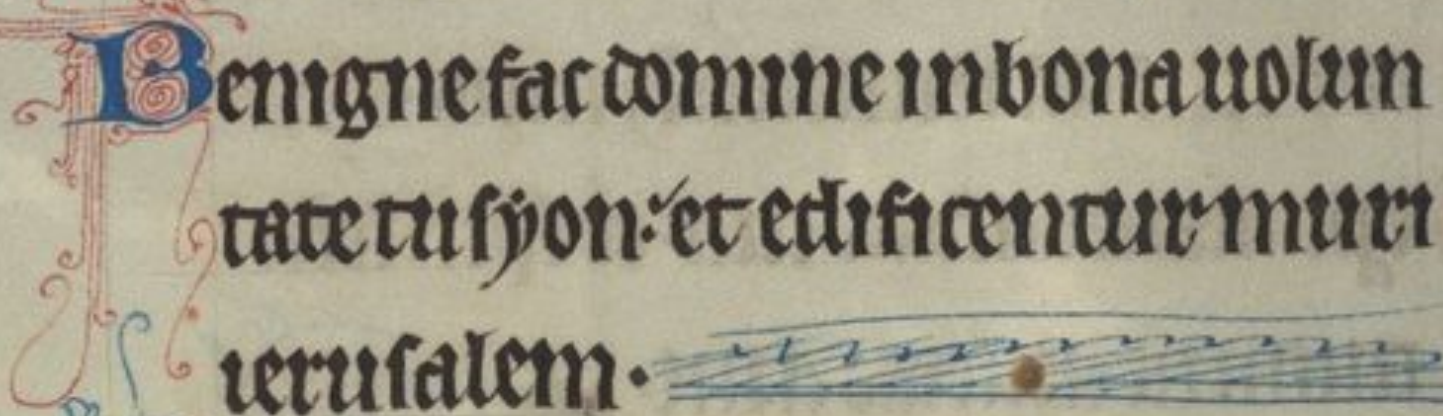 Benigne fac domine in bona uolun
tate tu syon: et edificentur muri
ierusalem.